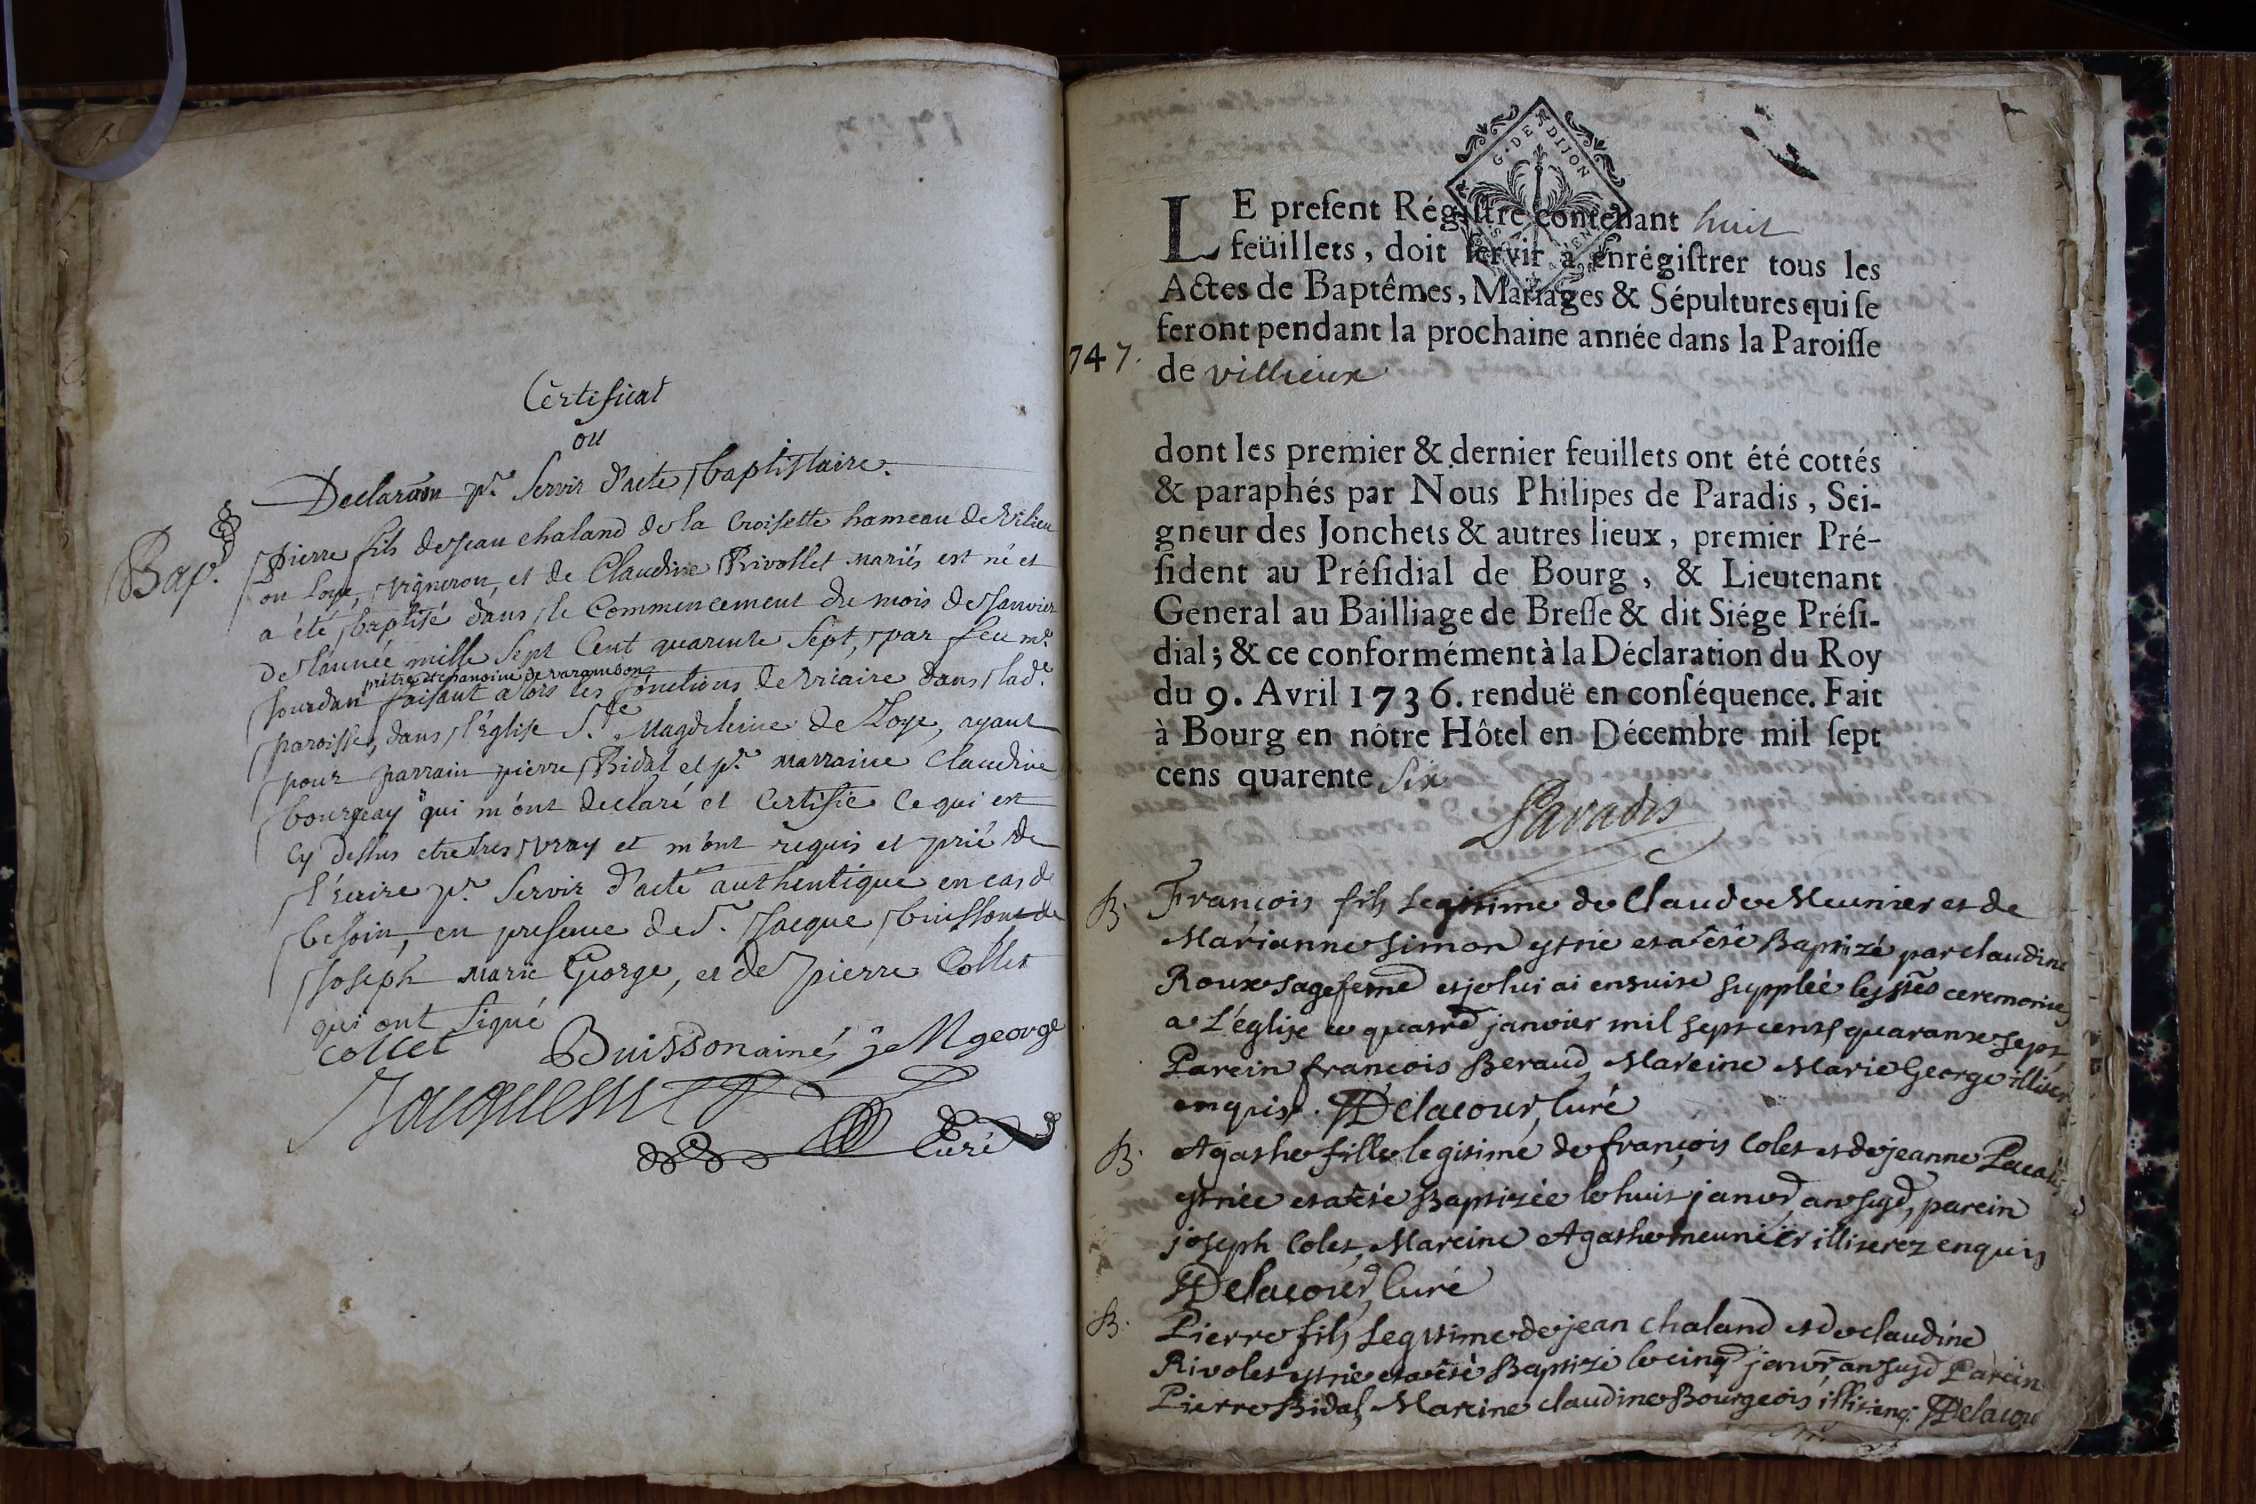 Certificat
ou
Declaraon pr. Servir d'acte baptistaire.
Bap.
Pierre fils de Jean chaland de la Croisette hameau de Vilieu
ou Loye, vigneron, et de Claudine Rivollet mariés est né et
a été baptisé dans le Commencement du mois de Janvier
de l'année mille Sept Cent quarente Sept, par feu mr.
prêtre et chanoine de varambon
Jourdan faisant alors les fonctions de vicaire dans lade.
paroisse, dans l'Eglise Ste. Magdeleine de Loye, ayant
pour parrain pierre Bidal et pr. marraine Claudine
bourgeay qui m'ont declaré et Certifié Ce qui est
Cy dessus etre tres vray et m'ont requis et prié de
l'Ecrire pr. Servir d'acte authentique en cas de
besoin, en presence de Sr. Jacque buisson de
Joseph Marie George, et de pierre Collet
qui ont Signé
Collet Buissonainé J M george
Curé
G. DE DIJON
LE present Régistre contenant huit
feüillets, doit servir à enrégistrer tous les
Actes de Baptêmes, Mariages & Sépultures qui se
feront pendant la prochaine année dans la Paroisse
747.
de villieux
dont les premier & dernier feuillets ont été cottés
& paraphés par Nous Philipes de Paradis, Sei-
gneur des Jonchets & autres lieux, premier Pré-
sident au Présidial de Bourg, & Lieutenant
General au Bailliage de Bresse & dit Siége Prési-
dial; & ce conformément à la Déclaration du Roy
du 9. Avril 1736. renduë en conséquence. Fait
à Bourg en nôtre Hôtel en Décembre mil sept
cens quarente Six
Paradis
B. François fils Legitime de Claude Meunier et de
Marianne Simon est né et a été Baptizé par claudine
Roux sage feme et je lui ai ensuite supplée les stes ceremonies
a L'église le quatre janvier mil sept cents quarante sept
Parein françois Beraud, Mareine Marie George illiter
enquis. Delacour, Curé
B. Agathe fille legitime de françois Colet et de jeanne Pacalis
est née et a été Baptizée le huit janvr an sugd, parein
joseph Colet, Mareine Agathe meunier illiterez enquis
Delacour, Curé
B. Pierre fils Legitime de jean Chaland et de claudine
Rivolet est né et a été Baptizé le cinq janvr an sugd Parein
Pierre Bidal, Mareine claudine Bourgeois, illit. enq. Delacour